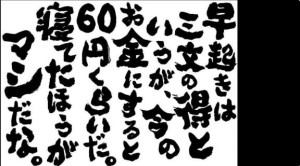 早起きは
三文の得と
いうが、今の
お金にすると
60円くらいだ。
寝てたほうが
マシだな。